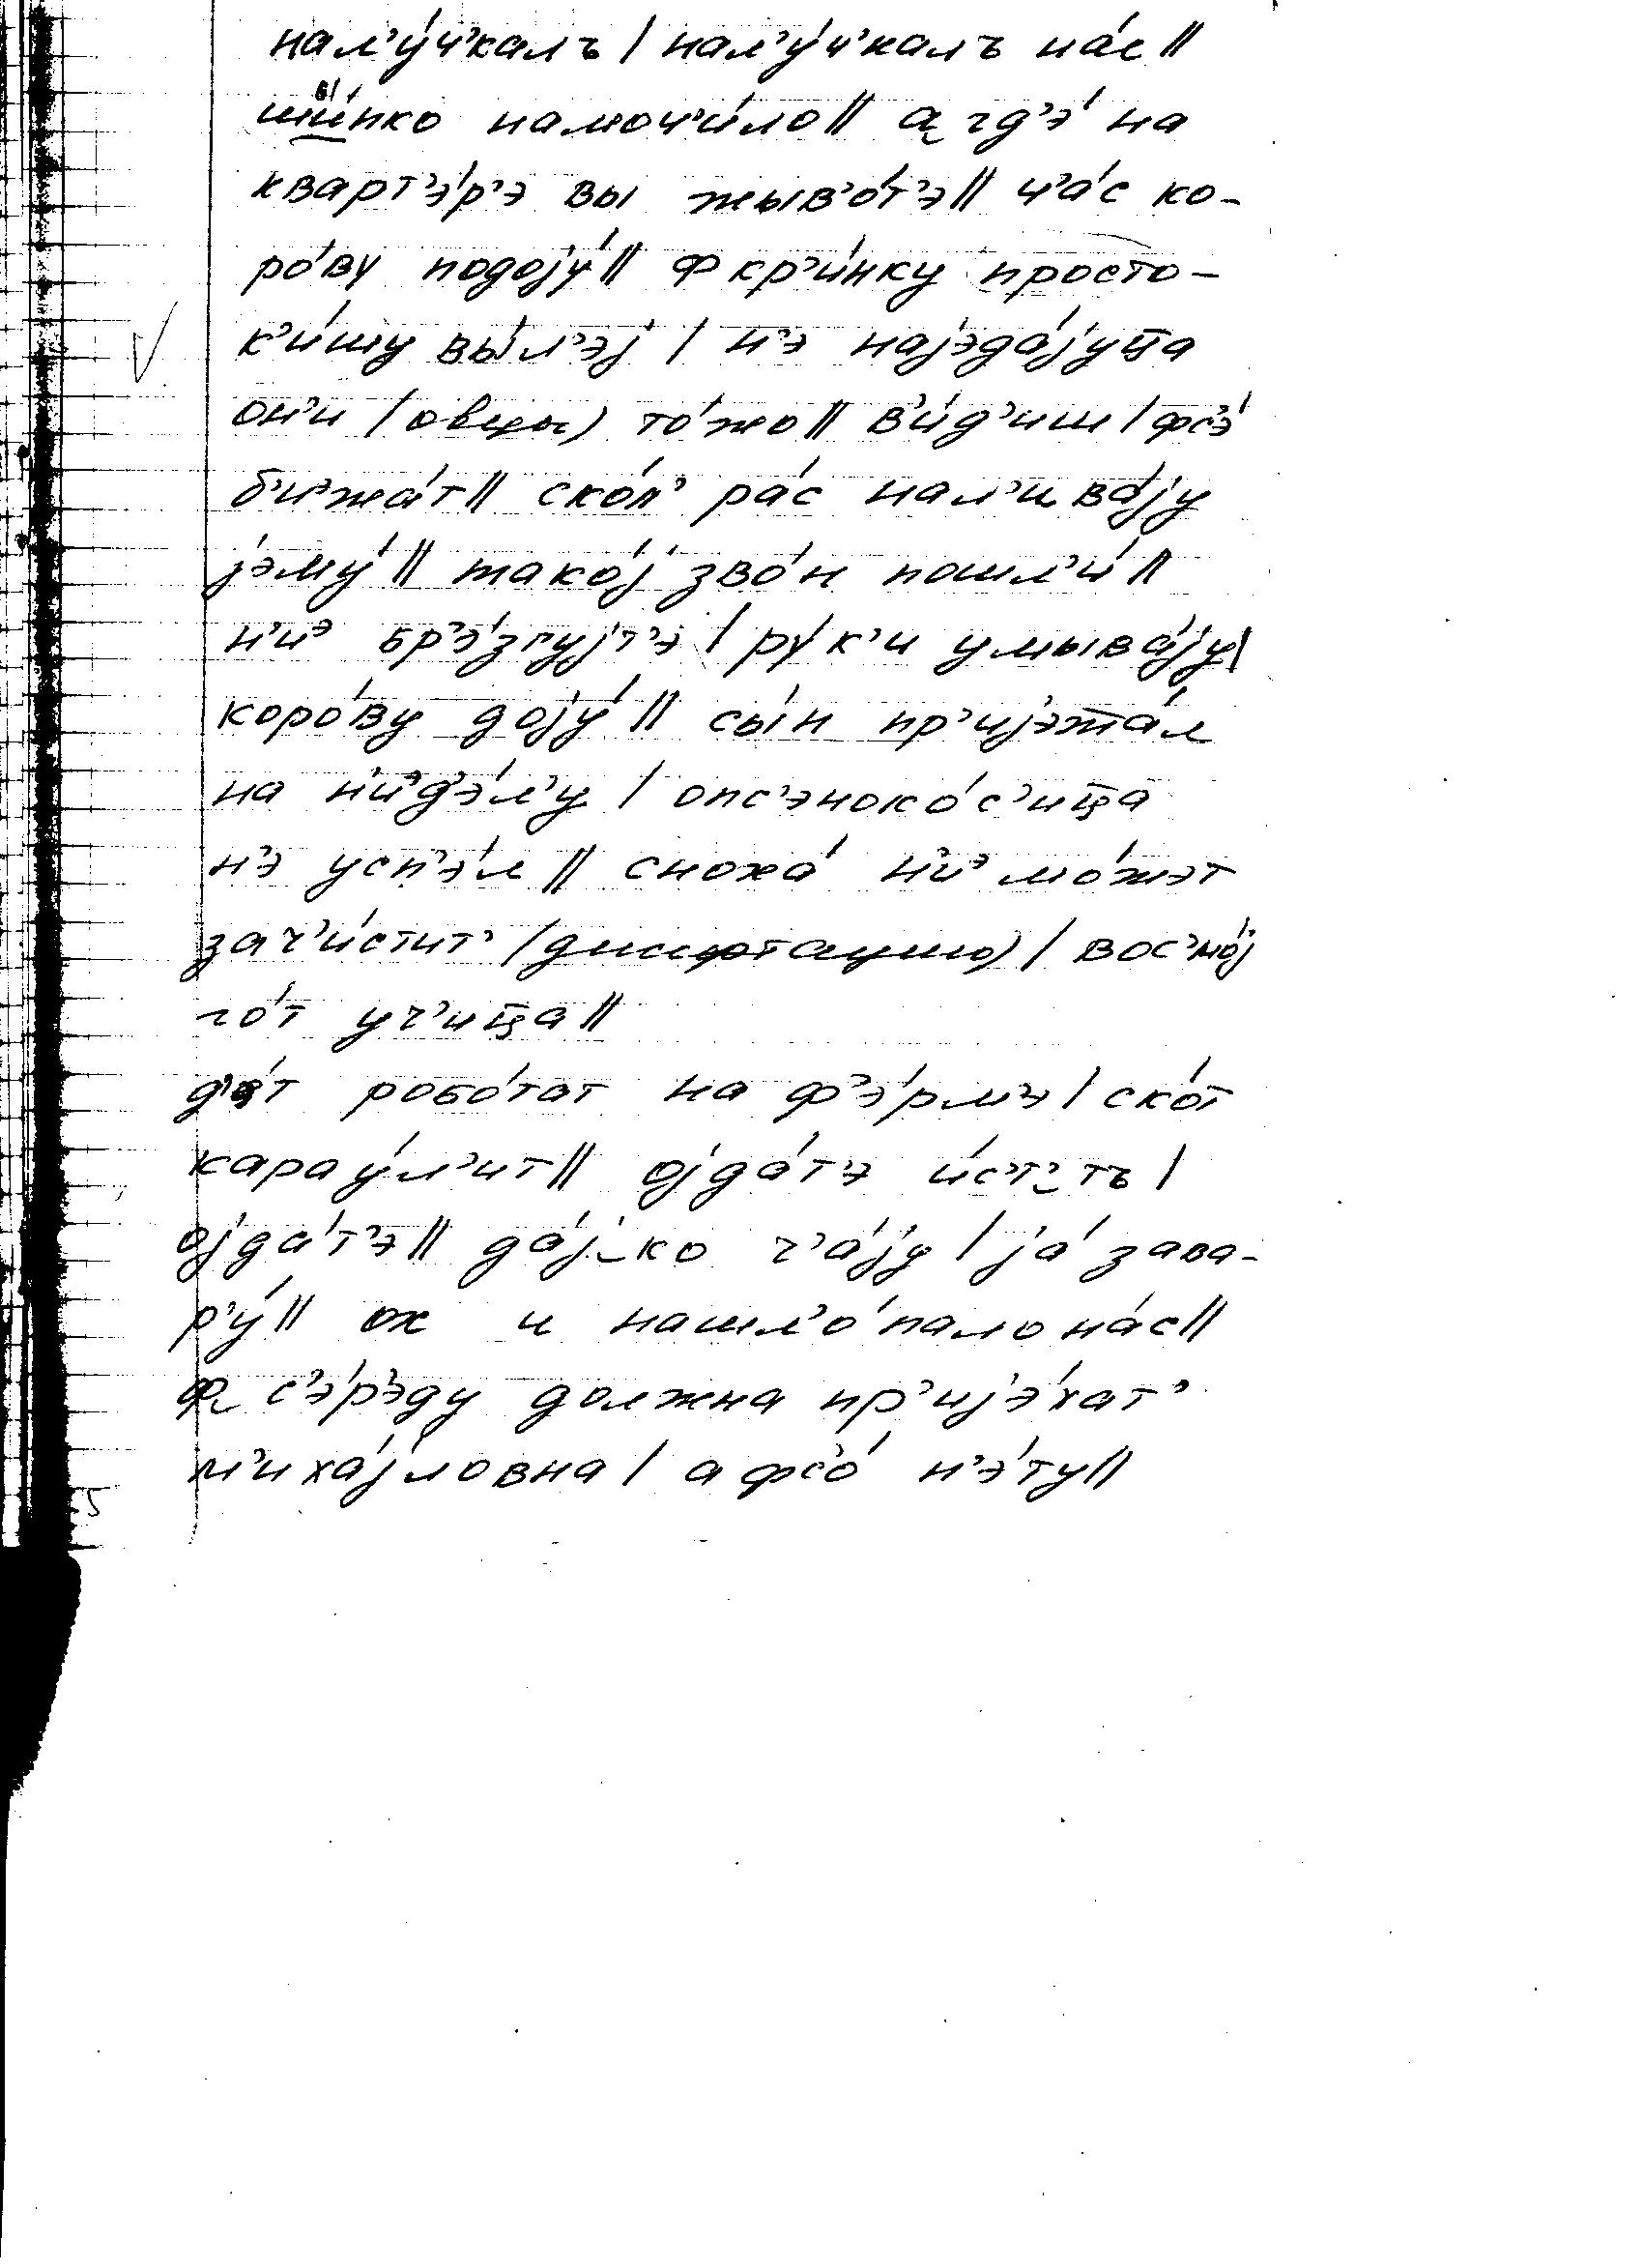 нал’у́ч’калъ | нал’у́ч’калъ на́с ||
ши́ᵇᶦпко намоч’и́ло || а гд’э́ на
кварт’э́р’э вы жыв’о́т’э || ч’а́с ко-
ро́ву подоjу́ || ф кр’и́нку просто-
к’и́шу вы́л’эj | н’э наjэда́jуц̄а
он’и (овцы) то́жо || в’и́д’иш | фс’э́
б’и’жа́т || ско́л’ ра́с нал’ива́jу
jэму́ || тако́j зво́н пошл’и́ ||
н’иᵊ бр’э́згуjт’э | ру́к’и умыва́jу |
коро́ву доjу́ || сы́н пр’иjэж̄а́л
на н’иᵊд’э́л’у | опс’эноко́с’иц̄а
н’э усп’э́л || сноха́ н’иᵊ мо́жэт
зач’и́стит’ (диссертацию) | вос’мо́j
го́т уч’иц̄а ||
д’а́т робо́тат на ф’э́рм’э | ско́т
карау́л’ит || оjда́т’э и́с’т’_тъ |
оjда́т’э || да́j_ко ч’а́jу | jа́ зава-
р’у́ || ох и нашл’о́пало на́с ||
ф с’э́р’эду должна пр’иjэ́хат’
м’иха́jловна | а фс’о́ н’э́ту ||
5